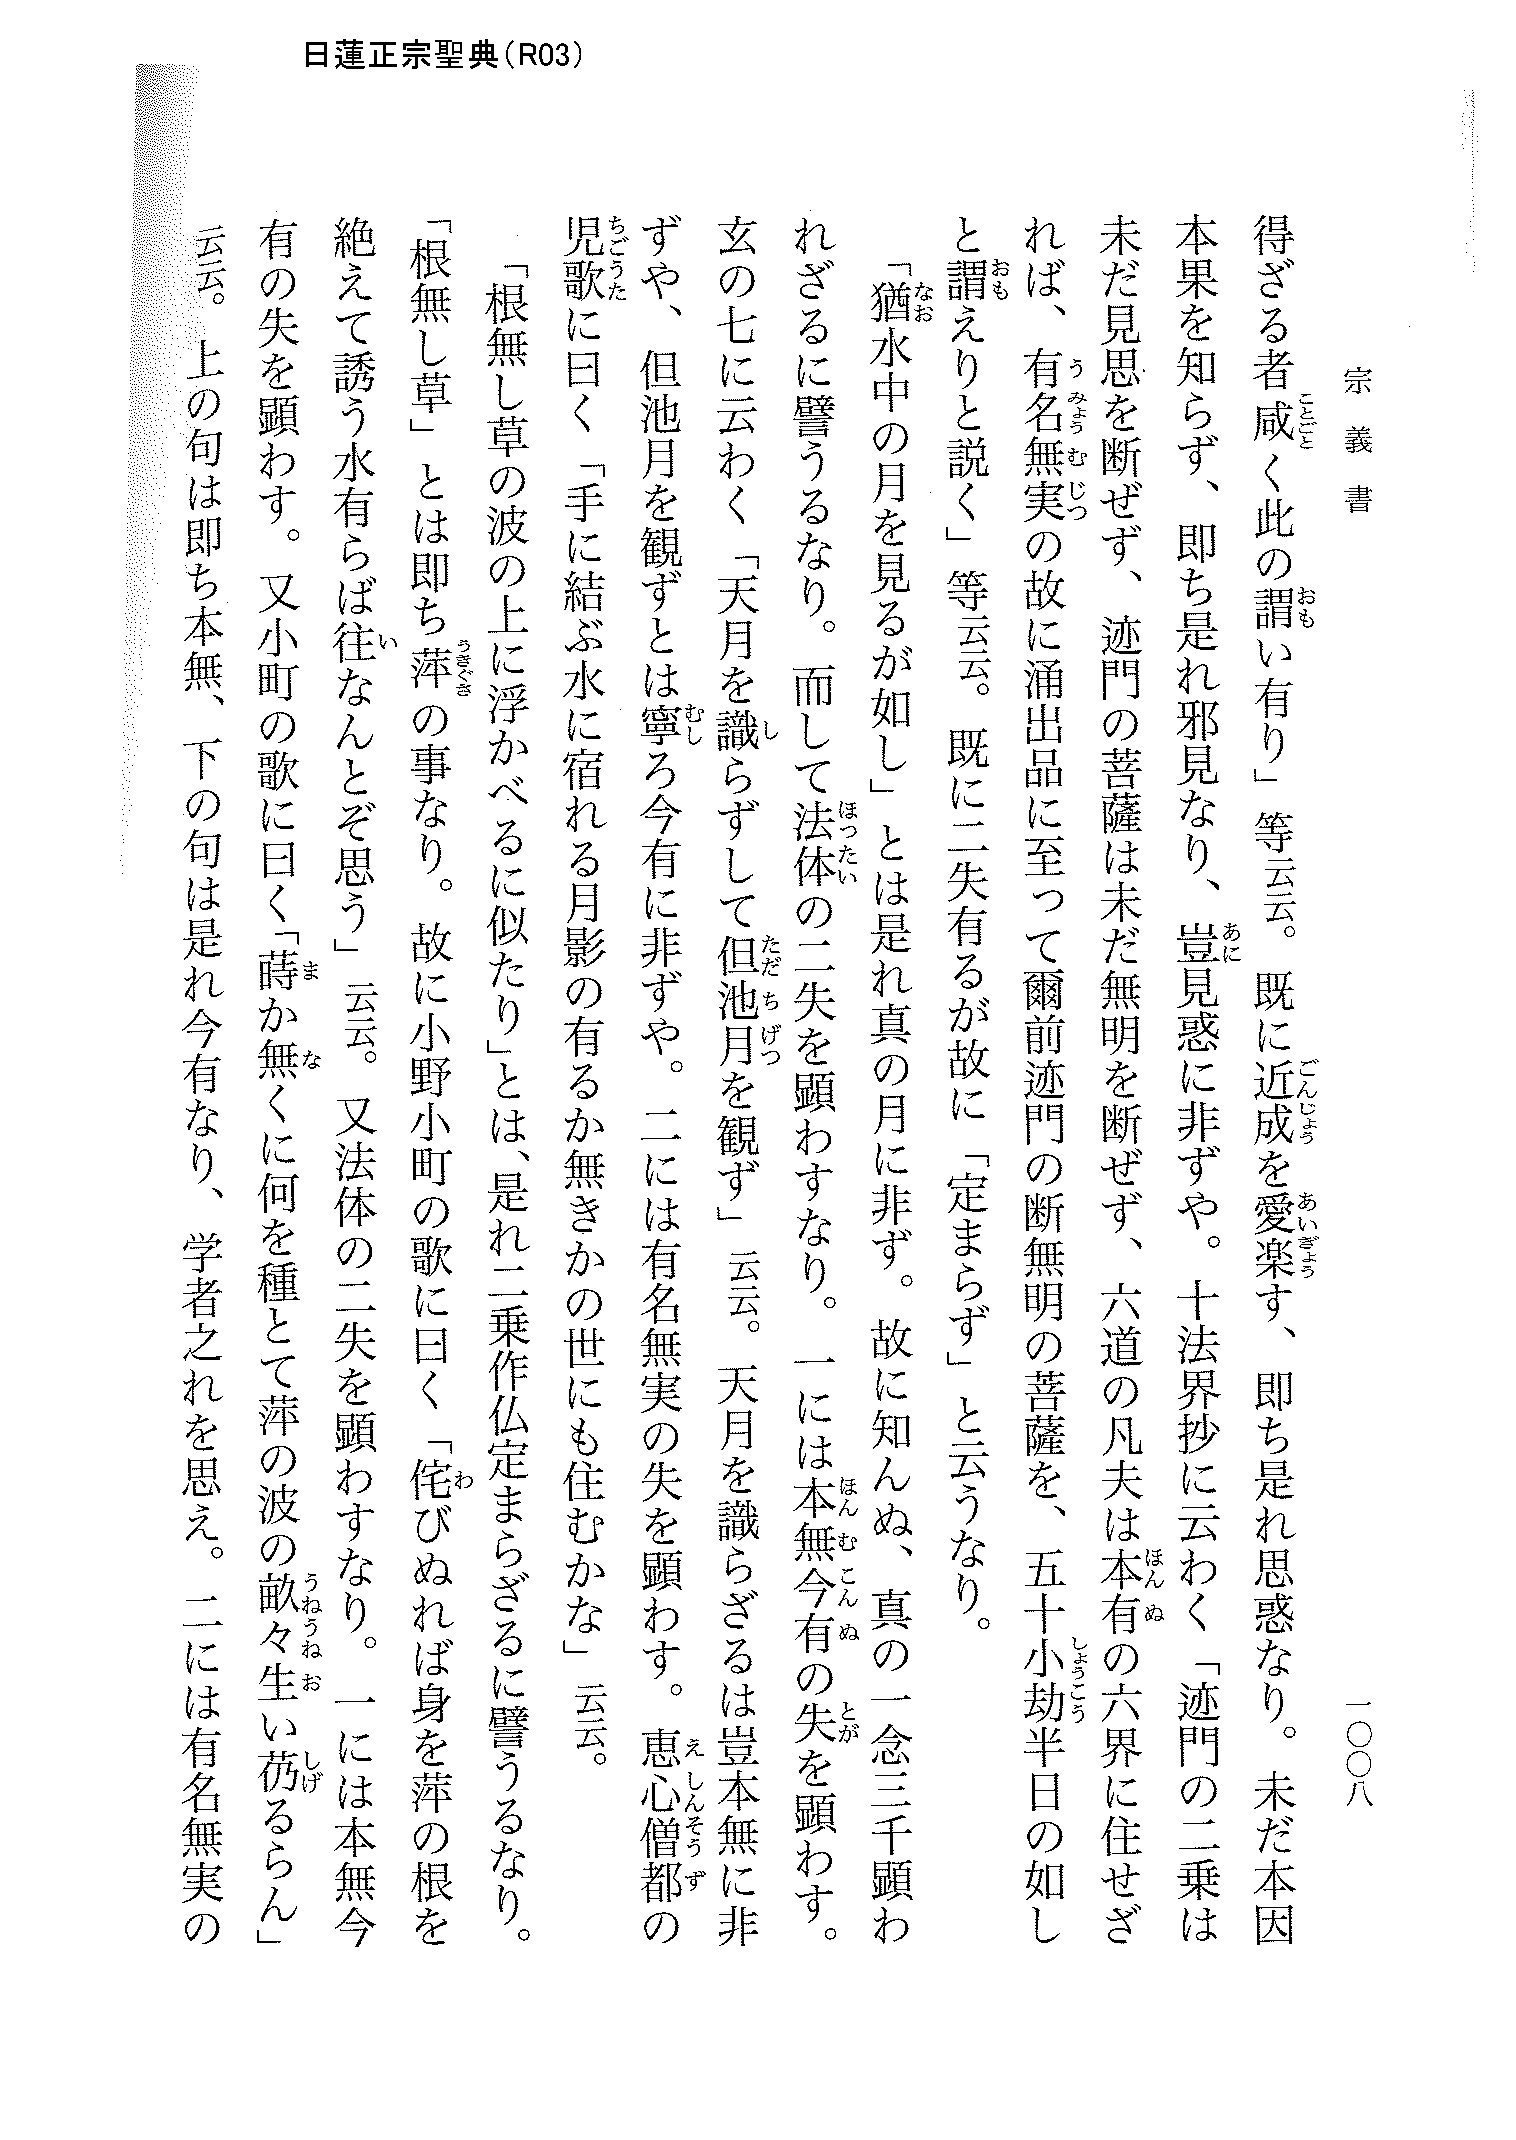 日蓮正宗聖典（R03）
宗義書
一〇〇八
得ざる者咸く此の謂い有り」等云云。既に近成を愛楽す、即ち是れ思惑なり。未だ本因
本果を知らず、即ち是れ邪見なり、豈見惑に非ずや。十法界抄に云わく「迹門の二乗は
未だ見思を断ぜず、迹門の菩薩は未だ無明を断ぜず、六道の凡夫は本有の六界に住せざ
れば、有名無実の故に涌出品に至って爾前迹門の断無明の菩薩を、五十小劫半日の如し
と謂えりと説く」等云云。既に二失有るが故に「定まらず」と云うなり。
「猶水中の月を見るが如し」とは是れ真の月に非ず。故に知んぬ、真の一念三千顕わ
れざるに譬うるなり。而して法体の二失を顕わすなり。一には本無今有の失を顕わす。
玄の七に云わく「天月を識らずして但池月を観ず」云云。天月を識らざるは豈本無に非
ずや、但池月を観ずとは寧ろ今有に非ずや。二には有名無実の失を顕わす。恵心僧都の
児歌に曰く「手に結ぶ水に宿れる月影の有るか無きかの世にも住むかな」云云。
「根無し草の波の上に浮かべるに似たり」とは、是れ二乗作仏定まらざるに譬うるなり。
「根無し草」とは即ち萍の事なり。故に小野小町の歌に曰く「侘びぬれば身を萍の根を
絶えて誘う水有らば往なんとぞ思う」云云。又法体の二失を顕わすなり。一には本無今
有の失を顕わす。又小町の歌に曰く「蒔か無くに何を種とて萍の波の畝々生い芿るらん」
云云。上の句は即ち本無、下の句は是れ今有なり、学者之れを思え。二には有名無実の